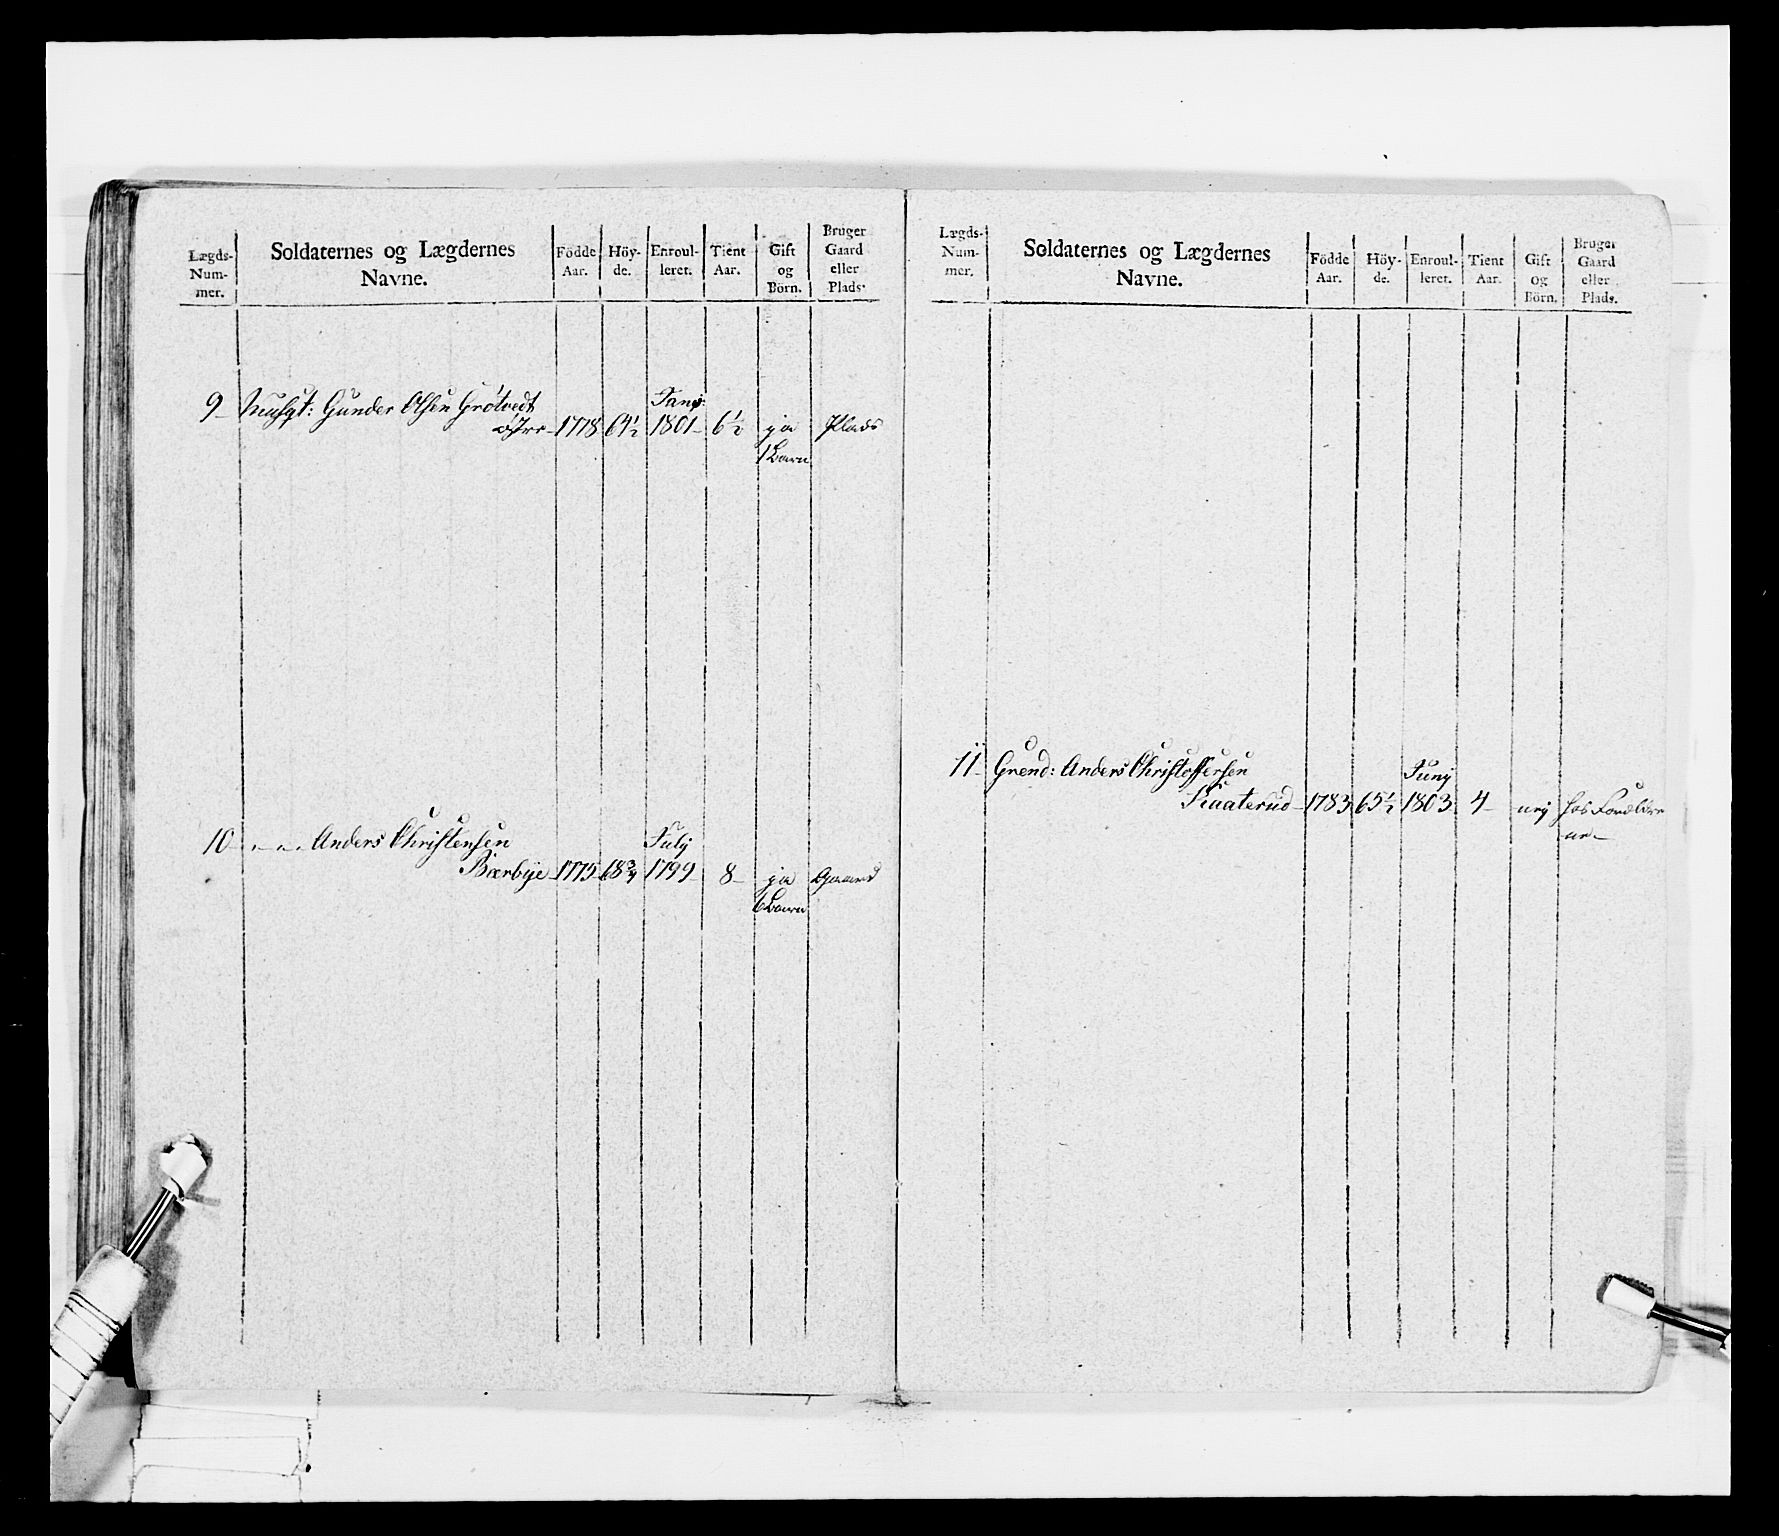 Lægds-
Num-
mer.
Soldaternes og Lægdernes
Navne.
Födde
Aar.
Höy-
de.
Enroul-
leret.
Tient
Aar.
Gift
og
Börn.
Bruger
Gaard
eller
Plads.
9 - Musqt: Gunder Olsen Grötvedt
östre - 1778 64½ Janj: 1801 - 6½ ja Plads
1 Barn
10 - „ - „ - Anders Christensen
Bærbye - 1775 - 68¾ July 1799 - 8 - ja Gaard
6 Barn
Lægds-
Num-
mer.
Soldaternes og Lægdernes
Navne.
Födde
Aar.
Höy-
de.
Enroul-
leret.
Tient
Aar.
Gift
og
Börn.
Bruger
Gaard
eller
Plads.
11 - Grend: Anders Christoffersen
Kaaterud - 1783 65½ Junj 1803 4 - nej hos Forældre
ne -